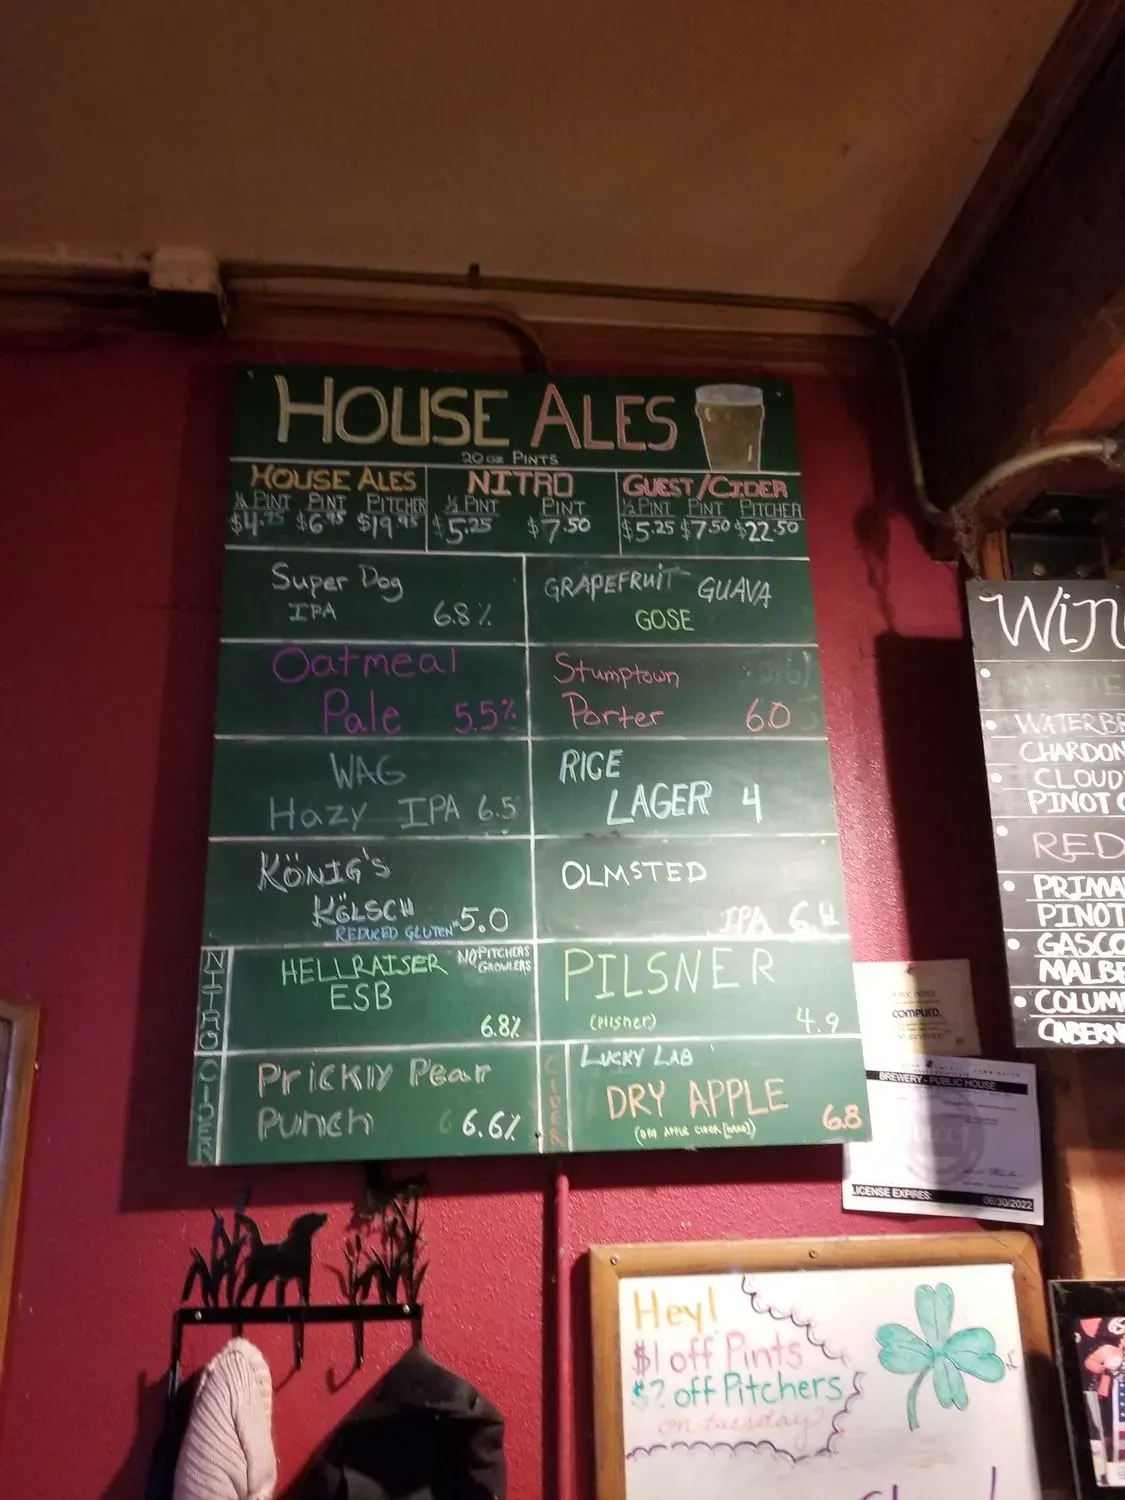 HOUSE ALES
20 oz PINTS
HOUSE ALES
½ PINT PINT PITCHER
$4.75 $6.95 $19.95
NITRO
½ PINT PINT
$5.25 $7.50
GUEST/CIDER
½ PINT PINT PITCHER
$5.25 $7.50 $22.50
Super Dog
IPA 6.8%
Oatmeal
Pale 5.5%
WAG
Hazy IPA 6.5
KÖNIG'S
KÖLSCH 5.0
"REDUCED GLUTEN"
NITRO
HELLRAISER
ESB
NO PITCHERS
GROWLERS
6.8%
CIDER
Prickly Pear
Punch 6.6%
GRAPEFRUIT GUAVA
GOSE
Stumptown
Porter 6.0
RICE
LAGER 4
OLMSTED
IPA 6.4
PILSNER
(Pilsner) 4.9
CIDER
LUCKY LAB
DRY APPLE 6.8
(DRY APPLE CIDER [HARD])
WATERBR
CHARDON
CLOUD
PINOT
RED
PRIMA
PINOT
GASCO
MALBE
COLUM
CABERN
COMPLIED
BREWERY - PUBLIC HOUSE
LICENSE EXPIRES: 06/30/2022
Hey!
$1 off Pints
$2 off Pitchers
on tuesday